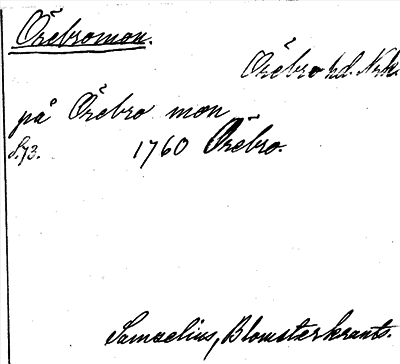 Örebromon.
Örebro hd. Nrk.
på Örebro mon
S. 73. 1760 Örebro.
Samzelius, Blomsterkrants.